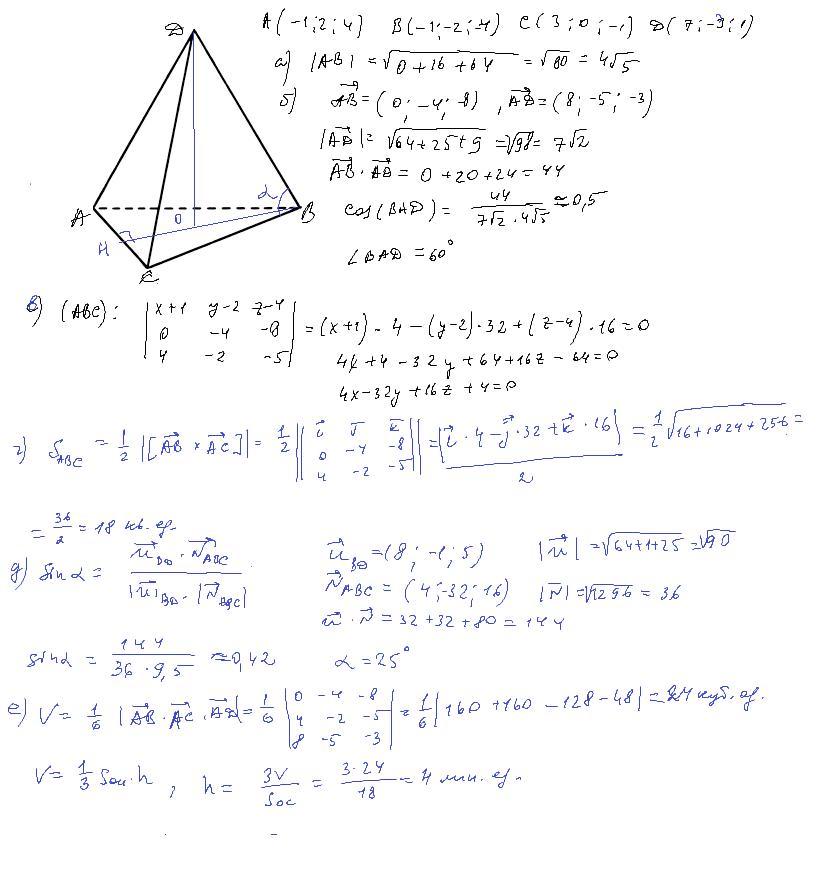 A(-1; 2; 4) B(-1; -2; -4) C(3; 0; -1) D(7; -3; 1)
а) |AB| = √(0+16+64) = √80 = 4√5
б) AB = (0; -4; -8), AD = (8; -5; -3)
|AD| = √(64+25+9) = √98 = 7√2
AB · AD = 0+20+24 = 44
cos(BAD) = 44/(7√2 · 4√5) ≈ 0,5
∠BAD = 60°
D
A
B
C
O
H
α
в) (ABC): | x+1 y-2 z-4 |
| 0 -4 -8 | = (x+1) · 4 - (y-2) · 32 + (z-4) · 16 = 0
| 4 -2 -5 |
4x + 4 - 32y + 64 + 16z - 64 = 0
4x - 32y + 16z + 4 = 0
г) S_ABC = 1/2 |[AB × AC]| = 1/2 || i j k; 0 -4 -8; 4 -2 -5 || = |i · 4 - j · 32 + k · 16|/2 = 1/2 √(16+1024+256) =
= 36/2 = 18 кв. ед.
д) sin α = u_BD · N_ABC / |u|_BD · |N_ABC|
u_BD = (8; -1; 5) |u| = √(64+1+25) = √90
N_ABC = (4; -32; 16) |N| = √1296 = 36
u · N = 32+32+80 = 144
sin α = 144/(36 · 9,5) ≈ 0,42 α = 25°
е) V = 1/6 |AB · AC · AD| = 1/6 | 0 -4 -8; 4 -2 -5; 8 -5 -3 | = 1/6 |160 + 160 - 128 - 48| = 24 куб. ед.
V = 1/3 Sосн · h, h = 3V/Sос = 3·24/18 = 4 лин. ед.